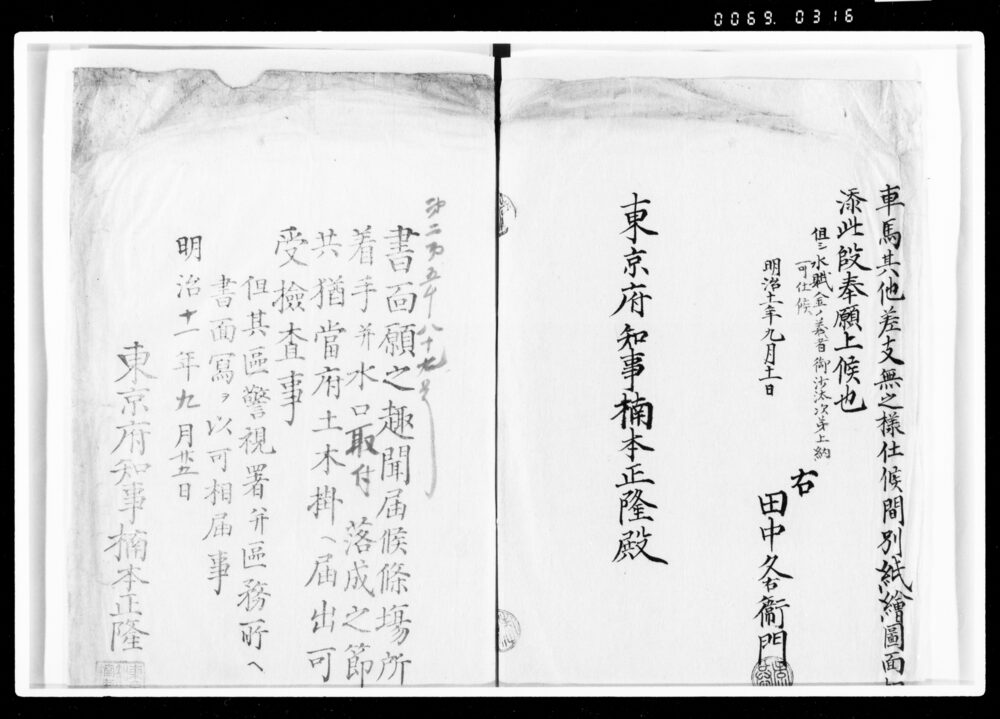 0069.0316
車馬其他差支無之様仕候間別紙繪圖面
添此段奉願上候也
但シ水職金ノ義者御沙汰次第上納
可仕候
明治十一年九月十一日
右
田中久右衛門
東京府知事楠本正隆殿
第二万五千八十九号
書面願之趣聞届候條塲所
着手并水口取付落成之節
共猶當府土木掛ヘ届出可
受撿査事
但其區警視署并區務所ヘ
書面冩ヲ以可相届事
明治十一年九月廿五日
東京府知事楠本正隆